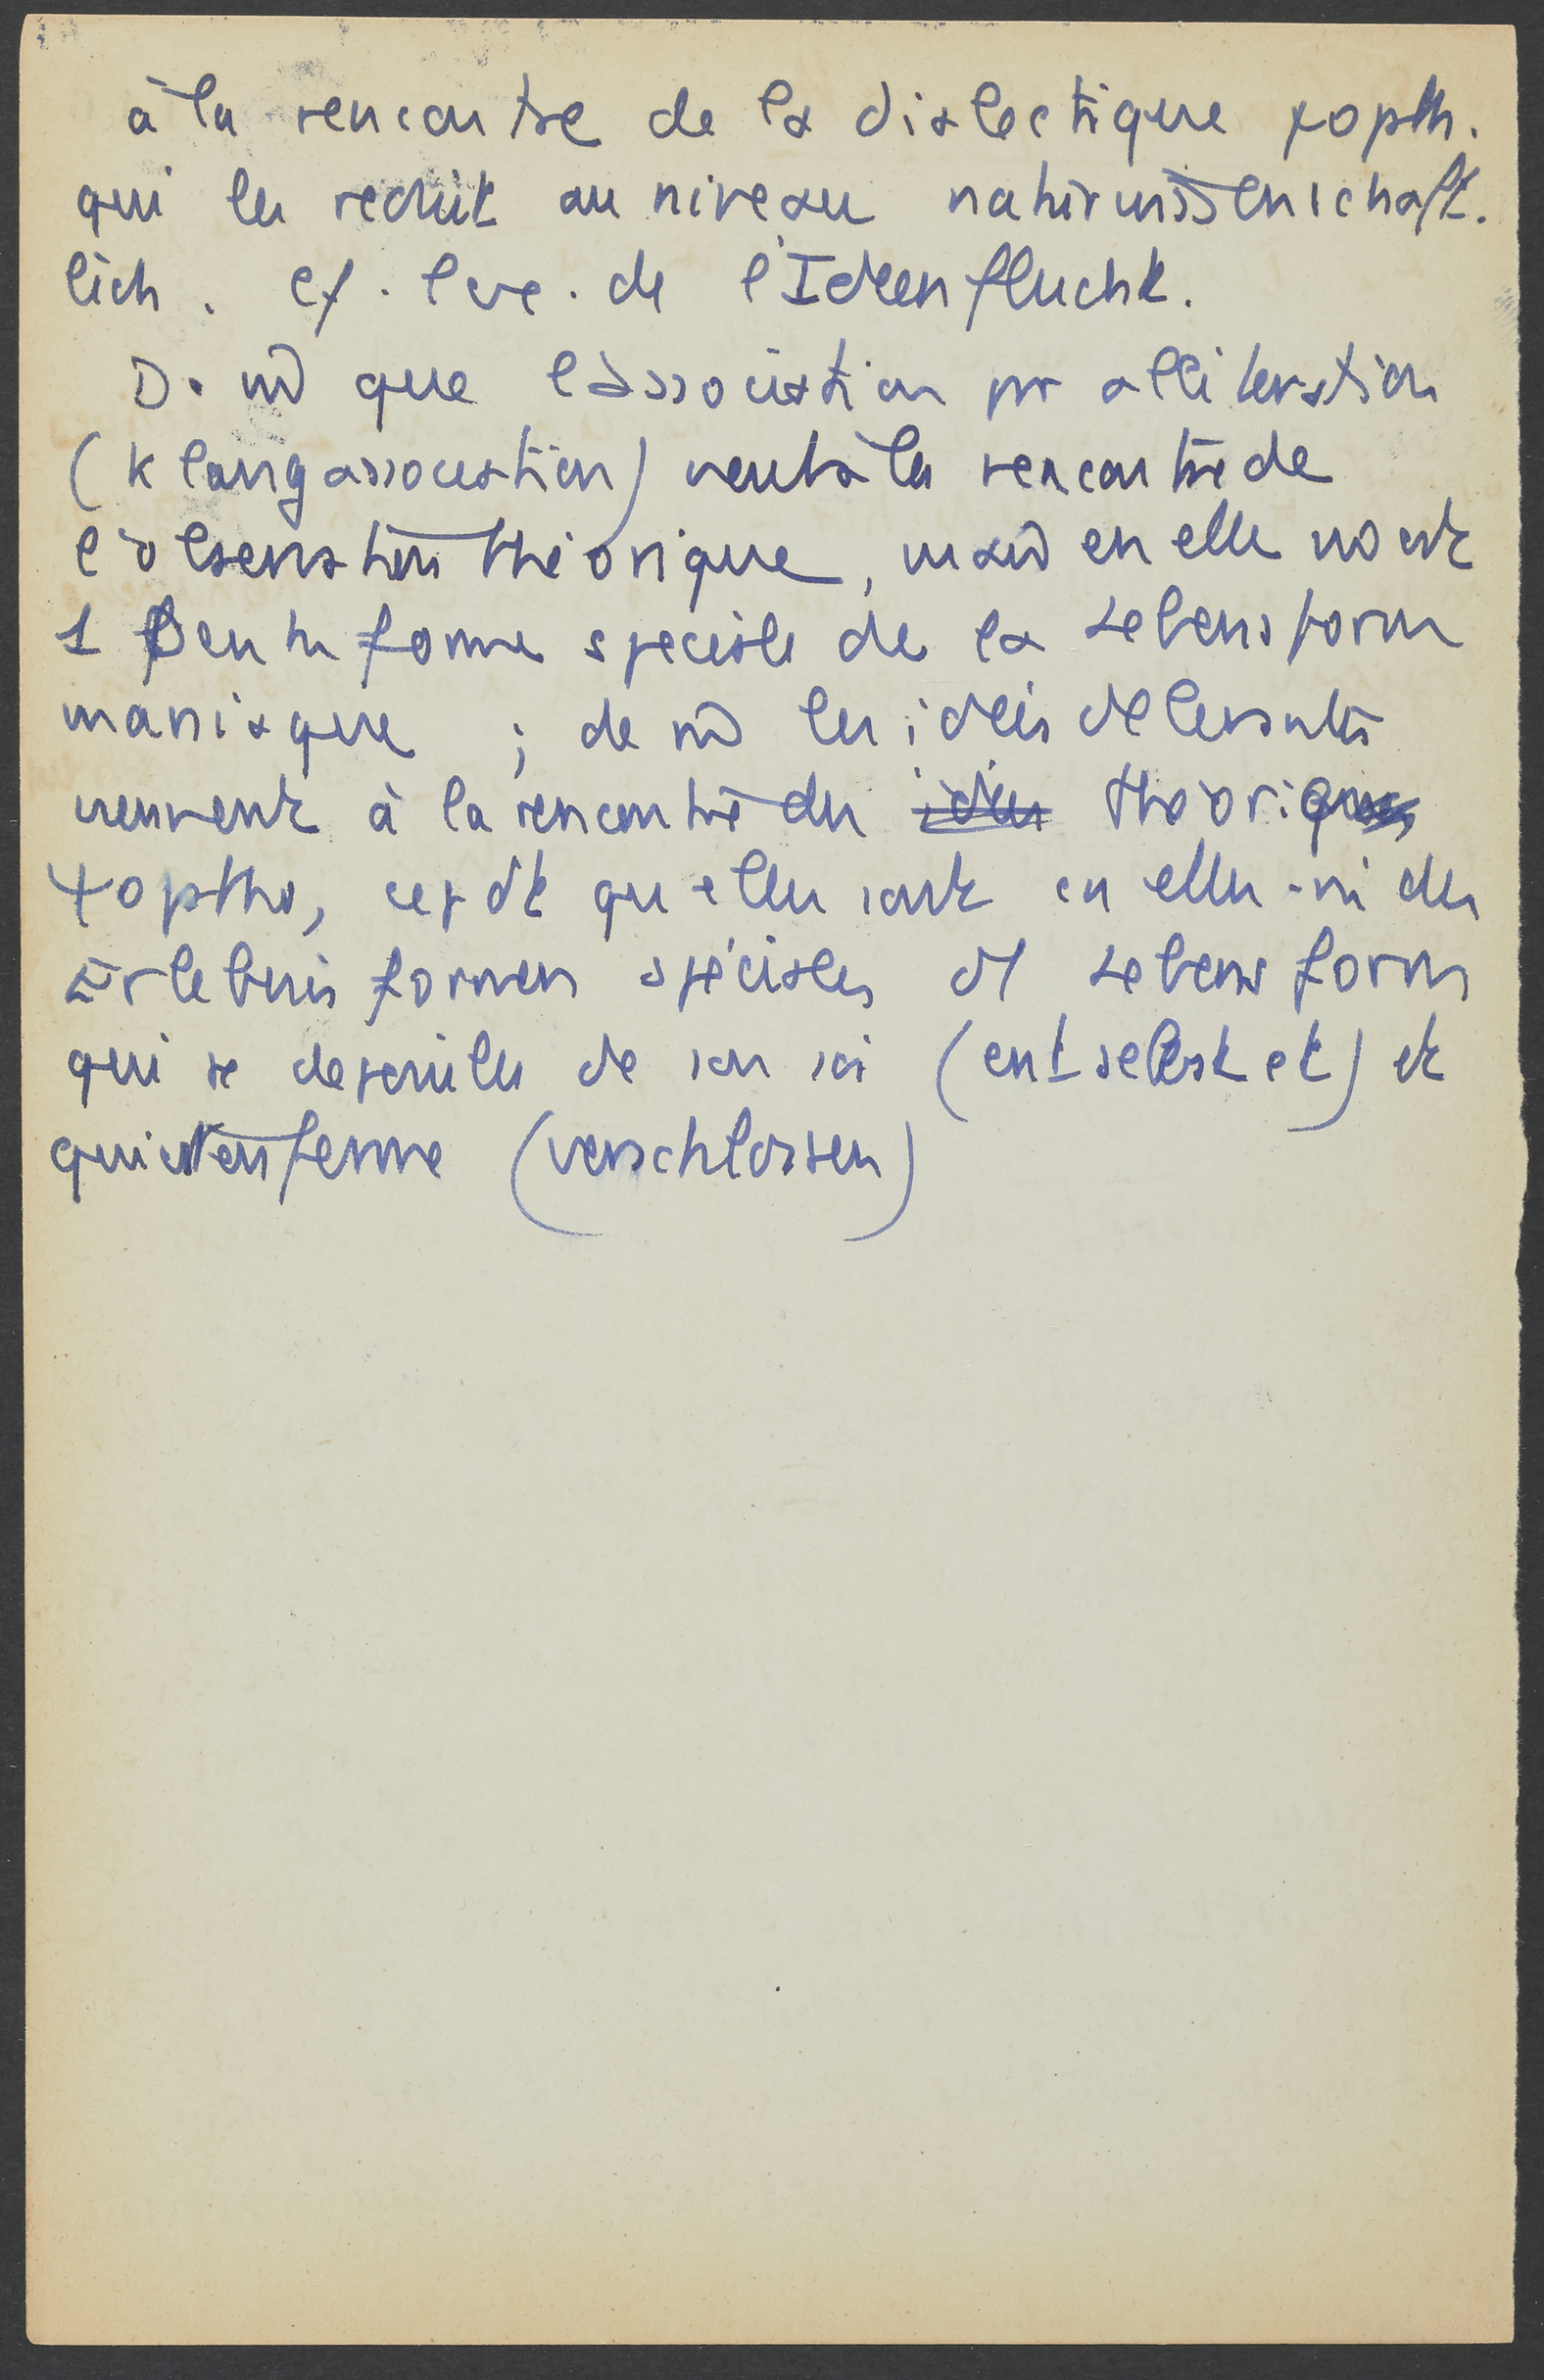 à la rencontre de la dialectique ψopth.
qui les réduit au niveau naturwissenschaft.
lich. cf. l'ex. de l'Ideenflucht.
D. m̂ que l'association par allitération
(Klangassociation) vient à la rencontre de
l'observation théorique, mais en elle m̂ est
1 Denkforme spéciale de la Lebensform
maniaque ; de m̂ les idées délirantes
viennent à la rencontre des idées théoriques
ψoptho, cependt qu'elles sont en elles-m̂ des
Erlebnisformen spéciales d'1 Lebensform
qui se dépouille de son soi (entselbstet) et
qui est enfermé (verschlossen)